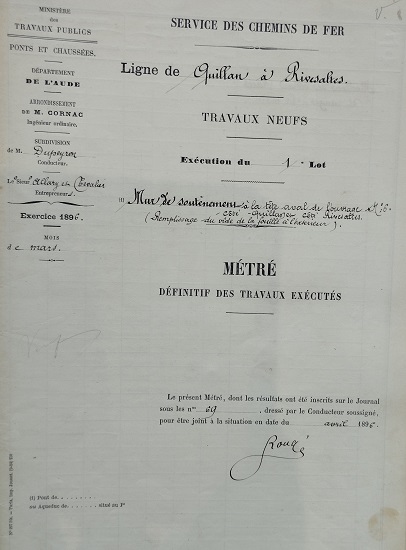 MINISTÈRE
des
TRAVAUX PUBLICS
PONTS ET CHAUSSÉES
DÉPARTEMENT
DE L'AUDE
ARRONDISSEMENT
DE M. CORNAC
Ingénieur ordinaire.
SUBDIVISION
de M. Dupeyron
Conducteur.
Le Sieur Allary et Chevalier
Entrepreneurs.
Exercice 1896.
MOIS
de mars.
SERVICE DES CHEMINS DE FER
Ligne de Quillan à Rivesaltes.
TRAVAUX NEUFS
Exécution du 1er Lot
(1) Mur de soutènement à la tête aval de l'ouvrage
côté Quillan, côté Rivesaltes.
(Remplissage du vide de la fouille à l'extérieur).
MÉTRÉ
DÉFINITIF DES TRAVAUX EXÉCUTÉS
Le présent Métré, dont les résultats ont été inscrits sur le Journal
sous les nos 69, dressé par le Conducteur soussigné,
pour être joint à la situation en date du avril 1896.
Rougé
(1) Pont de
ou Aqueduc de situé au Pt